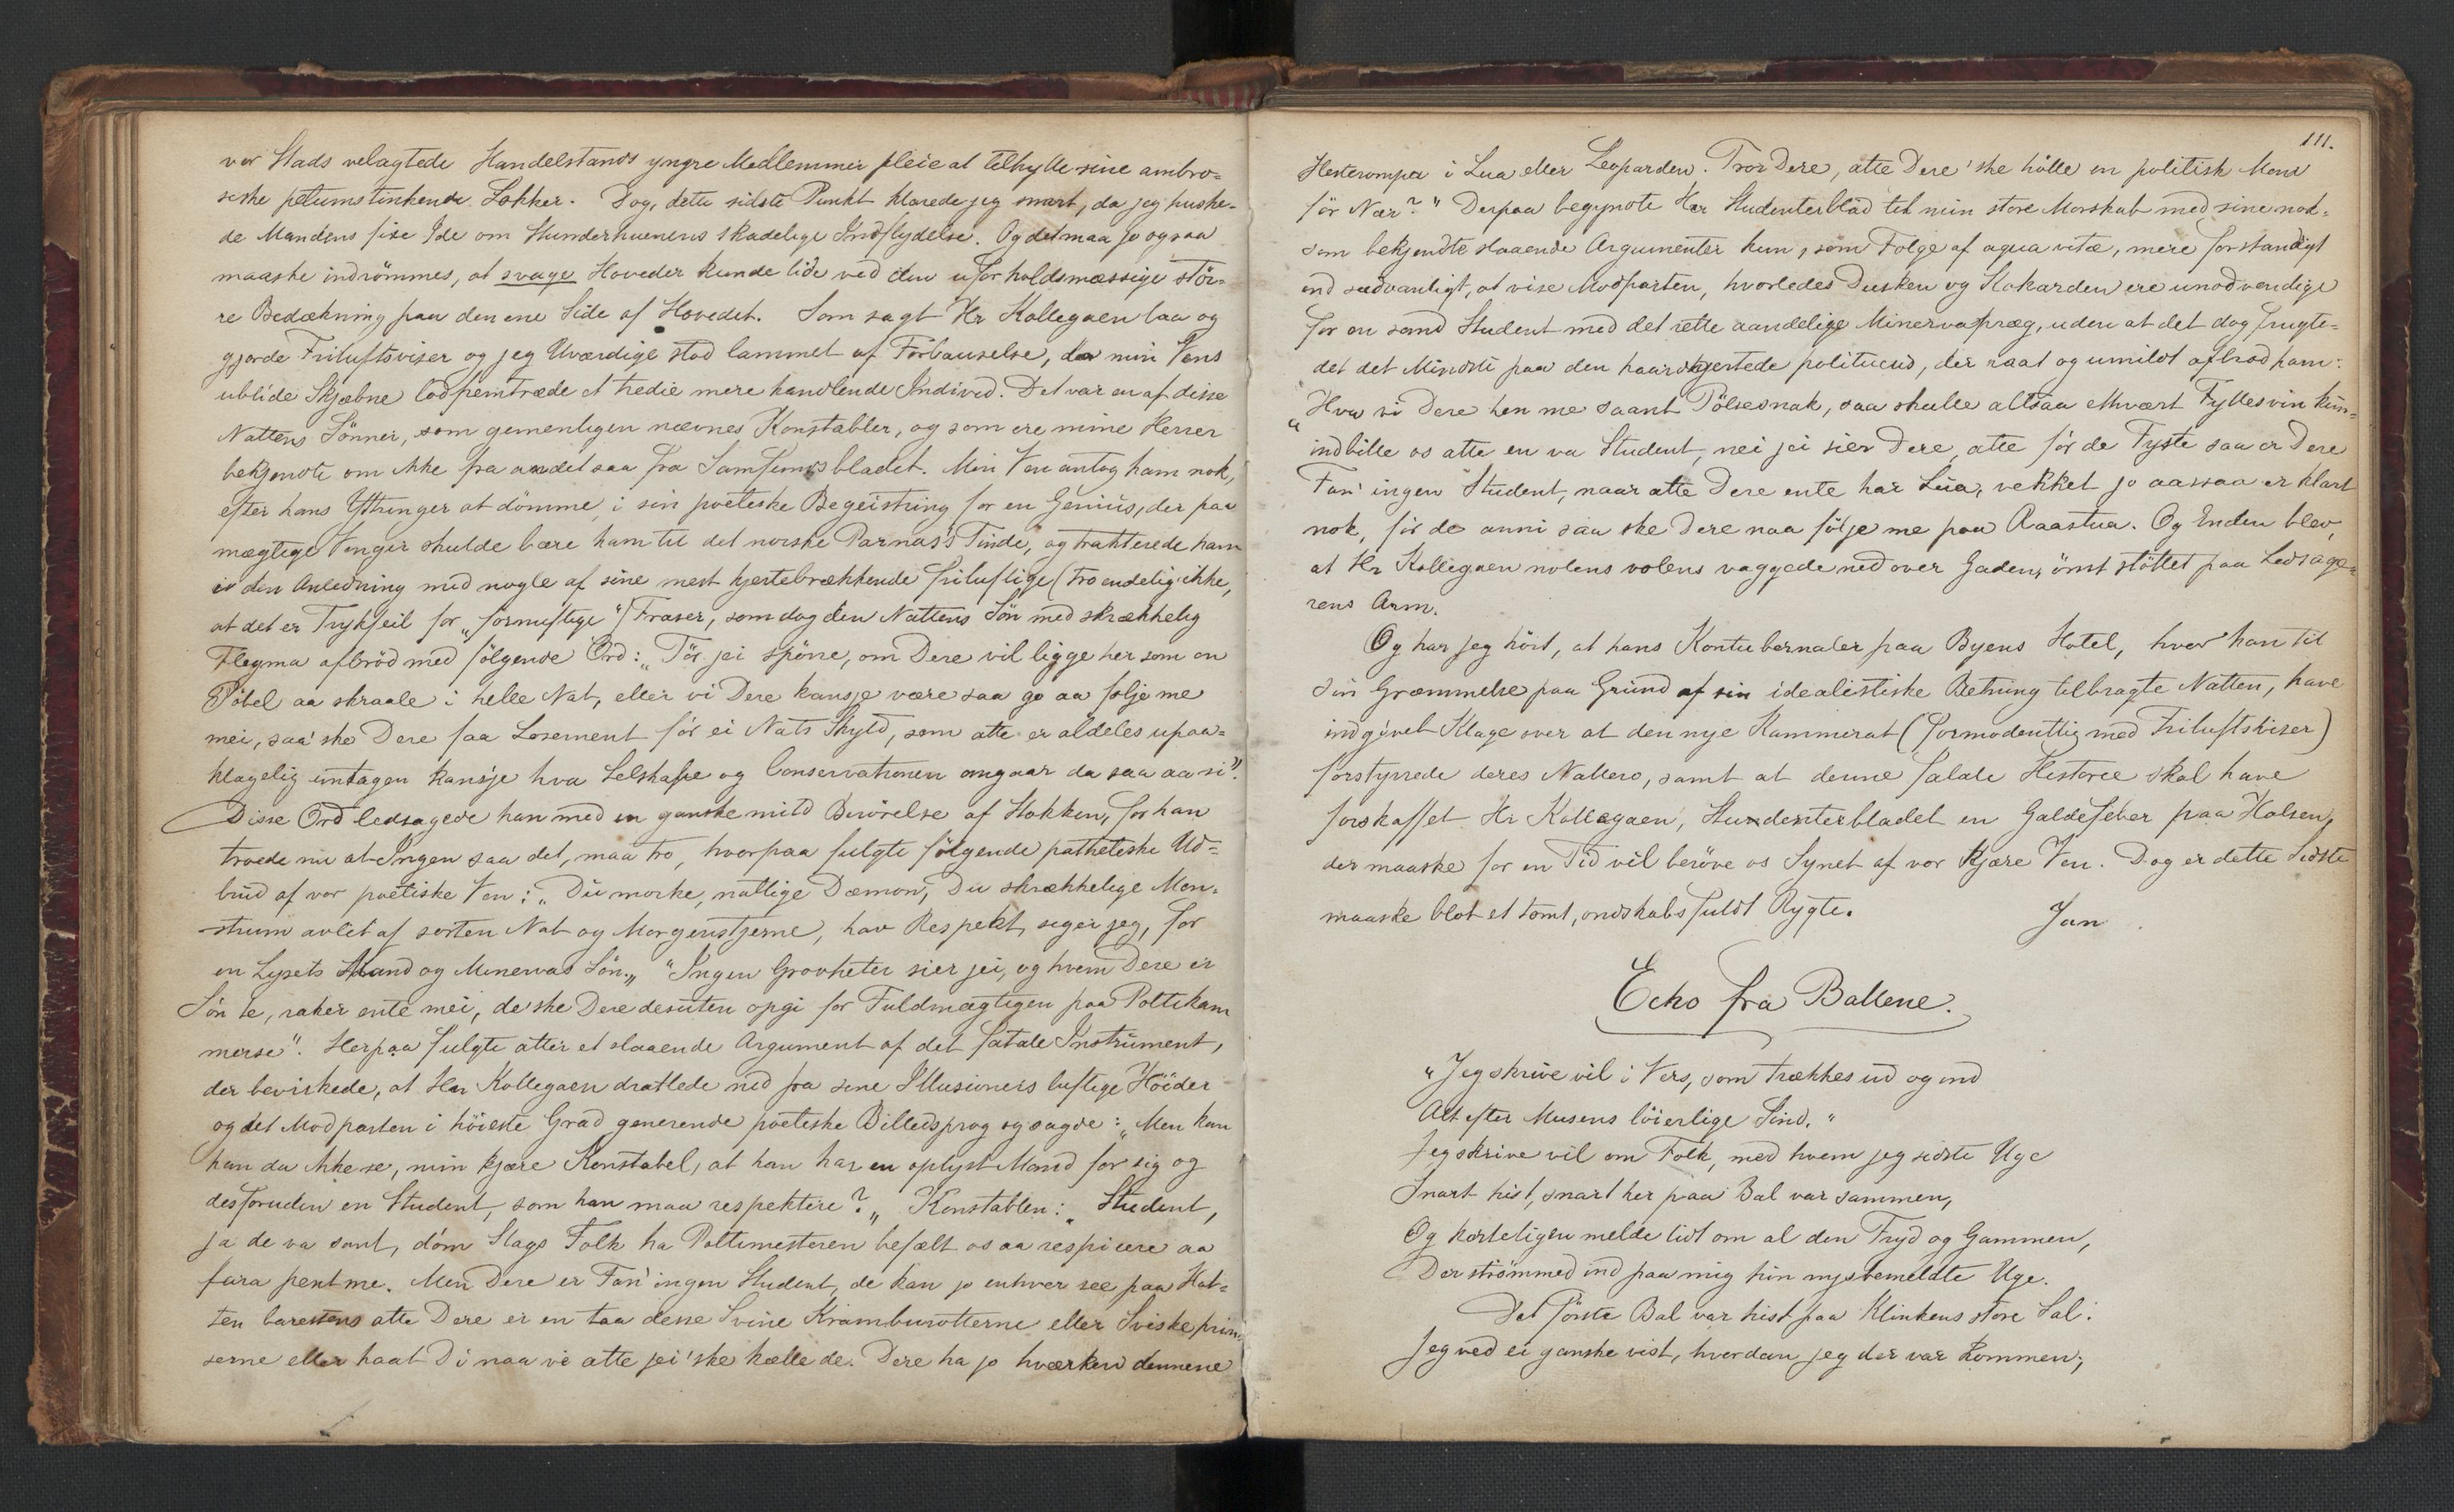 vor Stads velagtede Handelstands yngre Medlemmer pleie at tilhylle sine ambro=
siske petumstinkende Lokker. Dog, dette sidste Punkt klarede jeg snart, da jeg huske-
de Mandens fixe Ide om Studenterhuens skadelige Indflydelse. Og det maa jo ogsaa
maaske indrömmes, at svage Hoveder kunde lide ved den uforholdsmæssige stör-
re Bedækning paa den ene Side af Hovedet. Som sagt Hr Kollegaen laa og
gjorde Friluftsviser og jeg Uværdige stod lammet af Forbauselse, da min Vens
ublide Skjæbne lod fremtræde et tredie mere handlende Individ. Det var en af disse
Nattens Sönner, som gemenligen nævnes Konstabler, og som ere mine Herrer
bekjendte om ikke fra andet saa fra Samfundsbladet. Min Ven antog ham nok,
efter hans Yttringer at dömme, i sin poetiske Begeistring for en Genius, der paa
mægtige Vinger skulde bære ham til det norske Parnas's Tinde, og trakterede ham
i den Anledning med nogle af sine mest hjertebrækkende friluftige (tro endelig ikke,
at det er Trykfeil for „fornuftige“) Fraser, som dog den Nattens Sön med skrækkelig
Flegma afbröd med fölgende Ord: „Tör jei spörre, om Dere vil ligge her som en
Pöbel aa skraale i helle Nat, eller vi Dere kansje være saa go aa följe me
mei, saa' ske Dere faa Losement för ei Nats Skyld, som atte er aldeles upaa-
klagelig untagen kansje hva Selskape og Conservationen angaar da saa aa si".
Disse Ord ledsagede han med en ganske mild Berörelse af Stokken, for han
troede nu at Ingen saa det, maa tro, hvorpaa fulgte fölgende pathetiske Ud=
brud af vor poetiske Ven: „Du mörke, natlige Dæmon, Du skrækkelige Mon-
strum avlet af sorten Nat og Morgenstjerne, hav Respekt, siger jeg, for
en Lysets Mand og Minervas Sön.„ "Ingen Grovheter sier jei, og hvem Dere er
Sön te, raker ente mei, de ske Dere desuten opgi for Fuldmægtigen paa Poltikam
merse". Herpaa fulgte atter et slaaende Argument af det fatale Instrument,
der bevirkede, at Hr Kollegaen drattede ned fra sine Illusioners luftige Höider
og det Modparten i höieste Grad generende poetiske Billedsprog og sagde: „Men kan
han da ikke se, min kjære Konstabel, at han har en oplyst Mand for sig og
desforuden en Student, som han maa respektere?„ Konstablen: „Student,
ja de va sant, döm Slags Folk ha Poltimesteren befælt os aa respicere aa
fara pent me. Men Dere er Fan' ingen Student, de kan jo enhver see paa Hat-
ten barestens atte Dere er en taa desse Svine Kramburotterne eller Sviskeprin
serne eller haat Di naa vi atte jei 'ske kælle de. Dere ha jo hværken dennene
111.
Hesterompa i Lua eller Leoparden. Tror Dere, atte Dere 'ske hölle en politisk Mand
för Nar?" Derpaa begyndte Hr Studenterblad til min store Morskab med sine nok-
som bekjendte slaaende Argumenter kun, som Fölge af aqua vitæ, mere forstandigt
end sædvanligt, at vise Modparten, hvorledes Dusken og Kokarden ere unödvendige
for en sand Student med det rette aandelige Minervapræg, uden at det dog frugte-
det det Mindste paa den haardhjertede politicus, der raat og umildt afbröd ham:
„Hva vi Dere hen me saant Pölsesnak, saa skulle altsaa ethvært Fyllesvin kun-
indbille os atte en va Student, nei jei sier Dere, atte för de Fyste saa er Dere
Fan' ingen Student, naar atte Dere ente har Lua, vekket jo aassaa er klart
nok, för de anni saa ske Dere naa följe me paa Raastua. Og Enden blev,
at Hr Kollegaen nolens volens vaggede ned over Gaden, ömt stöttet paa Ledsage-
rens Arm.
Og har jeg hört, at hans Kontubernaler paa Byens Hotel, hvor han til
sin Græmmelse paa Grund af sin idealistiske Retning tilbragte Natten, have
indgivet Klage over at den nye Kammerat (formodentlig med Friluftsviser)
forstyrrede deres Nattero, samt at denne fatale Historie skal have
forskaffet Hr Kollegaen, Studenterbladet en Galdefeber paa Halsen,
der maaske for en Tid vil beröve os Synet af vor kjære Ven. Dog er dette Sidste
maaske blot et tomt, ondskabsfuldt Rygte.
Jan
Echo fra Ballene.
"Jeg skrive vil i Vers, som trækkes ud og ind
Alt efter Musens löierlige Sind."
Jeg skrive vil om Folk, med hvem jeg sidste Uge
Snart hist, snart her paa Bal var sammen,
Og korteligen melde lidt om al den Fryd og Gammen,
Der strömmed ind paa mig hin nysbemeldte Uge.
Det förste Bal var hist paa Klinkens store Sal:
Jeg ved ei ganske vist, hvordan jeg der var kommen;